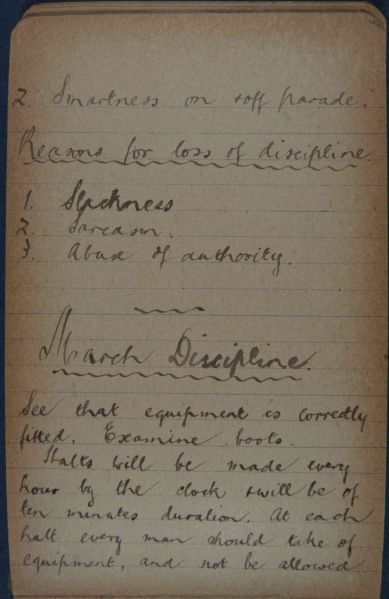 2. Smartness on & off parade.
Reasons for loss of discipline
1. Slackness
2. Sarcasm.
3. Abuse of authority.
March Discipline.
See that equipment is correctly
fitted. Examine boots.
Halts will be made every
hour by the clock & will be of
ten minutes duration. At each
halt every man should take of
equipment, and not be allowed